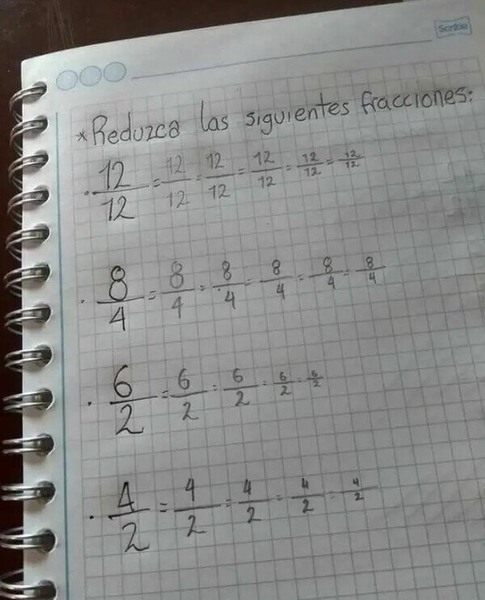 Scribe
*Reduzca las siguientes fracciones:
· 12/12 = 12/12 = 12/12 = 12/12 = 12/12 = 12/12
· 8/4 = 8/4 = 8/4 = 8/4 = 8/4 = 8/4
· 6/2 = 6/2 = 6/2 = 6/2 = 6/2
· 4/2 = 4/2 = 4/2 = 4/2 = 4/2